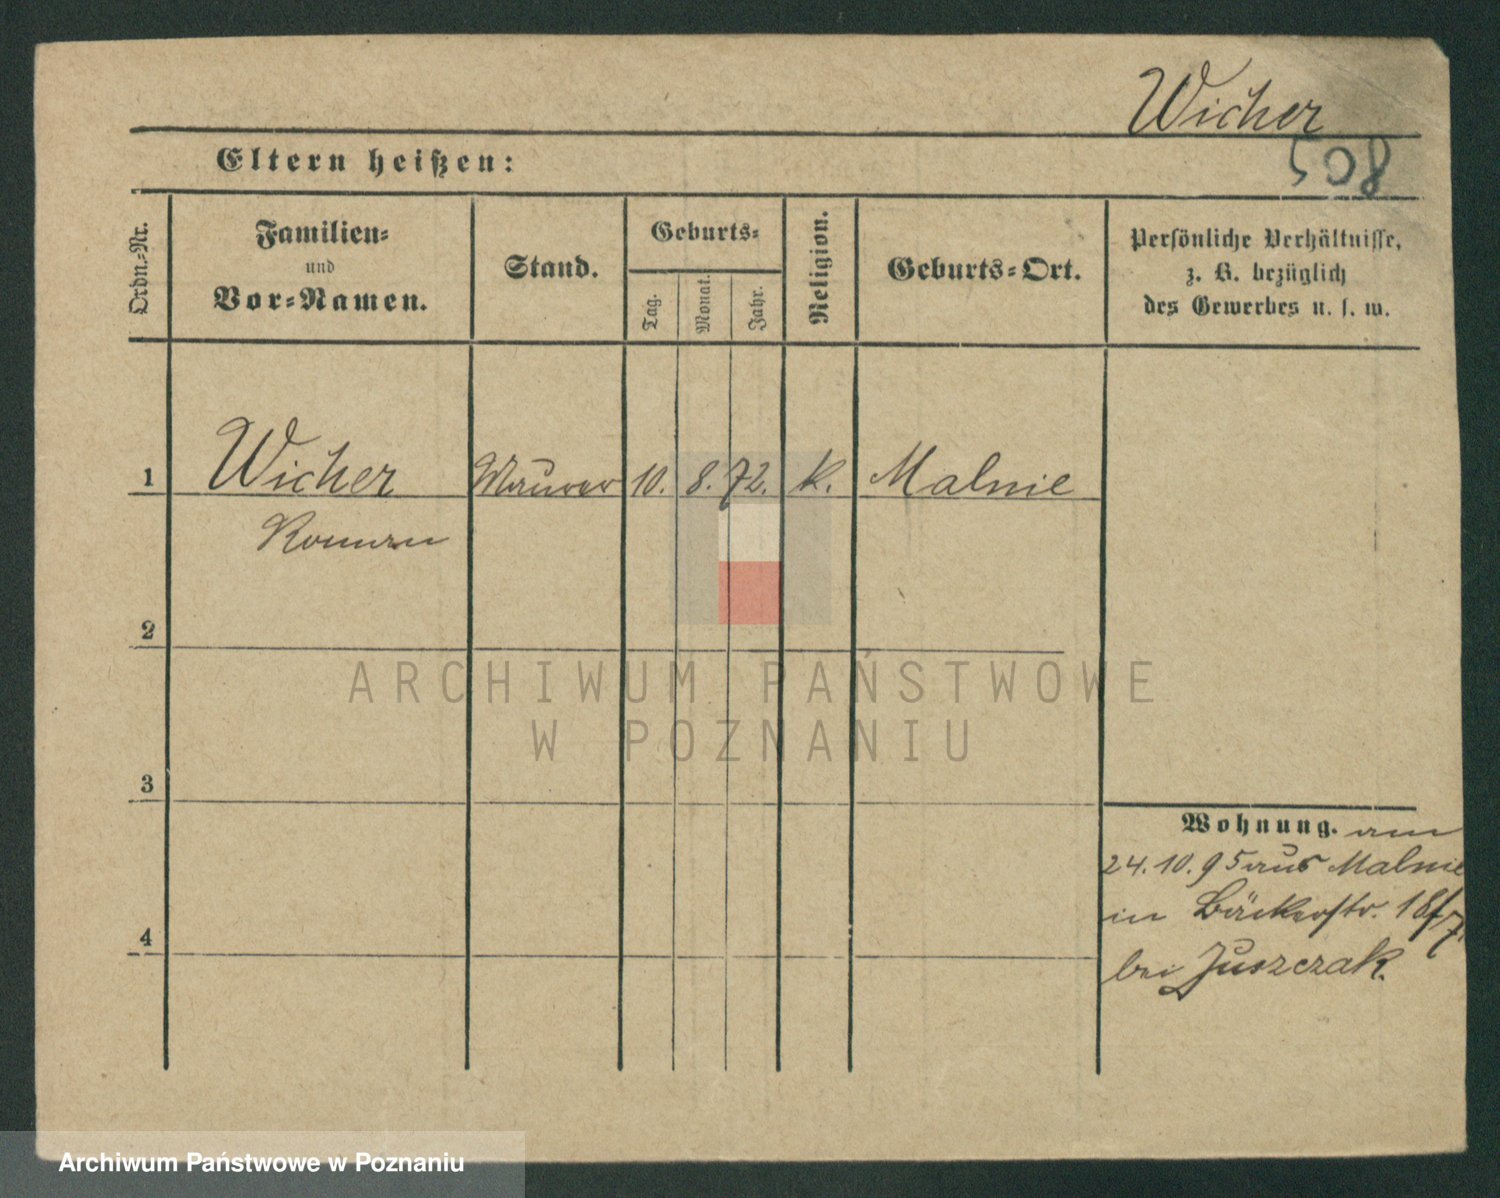 Wicher
508
Eltern heißen:
Ordn.-Nr.
Familien-
und
Vor-Namen.
Stand.
Geburts-
Tag.
Monat.
Jahr.
Religion.
Geburts-Ort.
Persönliche Verhältnisse,
z. B. bezüglich
des Gewerbes u. s. w.
1 Wicher Maurer 10. 8. 72. k. Malnie
Roman
2
3
4
Wohnung. am
24.10.95 aus Malnie
in Bäckerstr. 18/7.
bei Juszczak.
ARCHIWUM PAŃSTWOWE
W POZNANIU
Archiwum Państwowe w Poznaniu